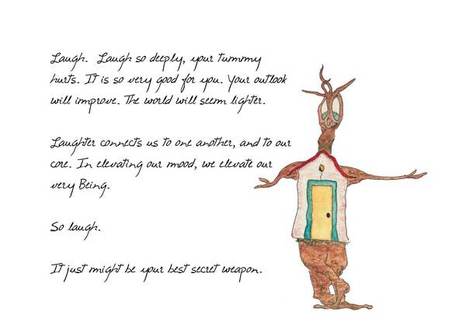 Laugh. Laugh so deeply, your tummy
hurts. It is so very good for you. Your outlook
will improve. The world will seem lighter.
Laughter connects us to one another, and to our
core. In elevating our mood, we elevate our
very Being.
So laugh.
It just might be your best secret weapon.